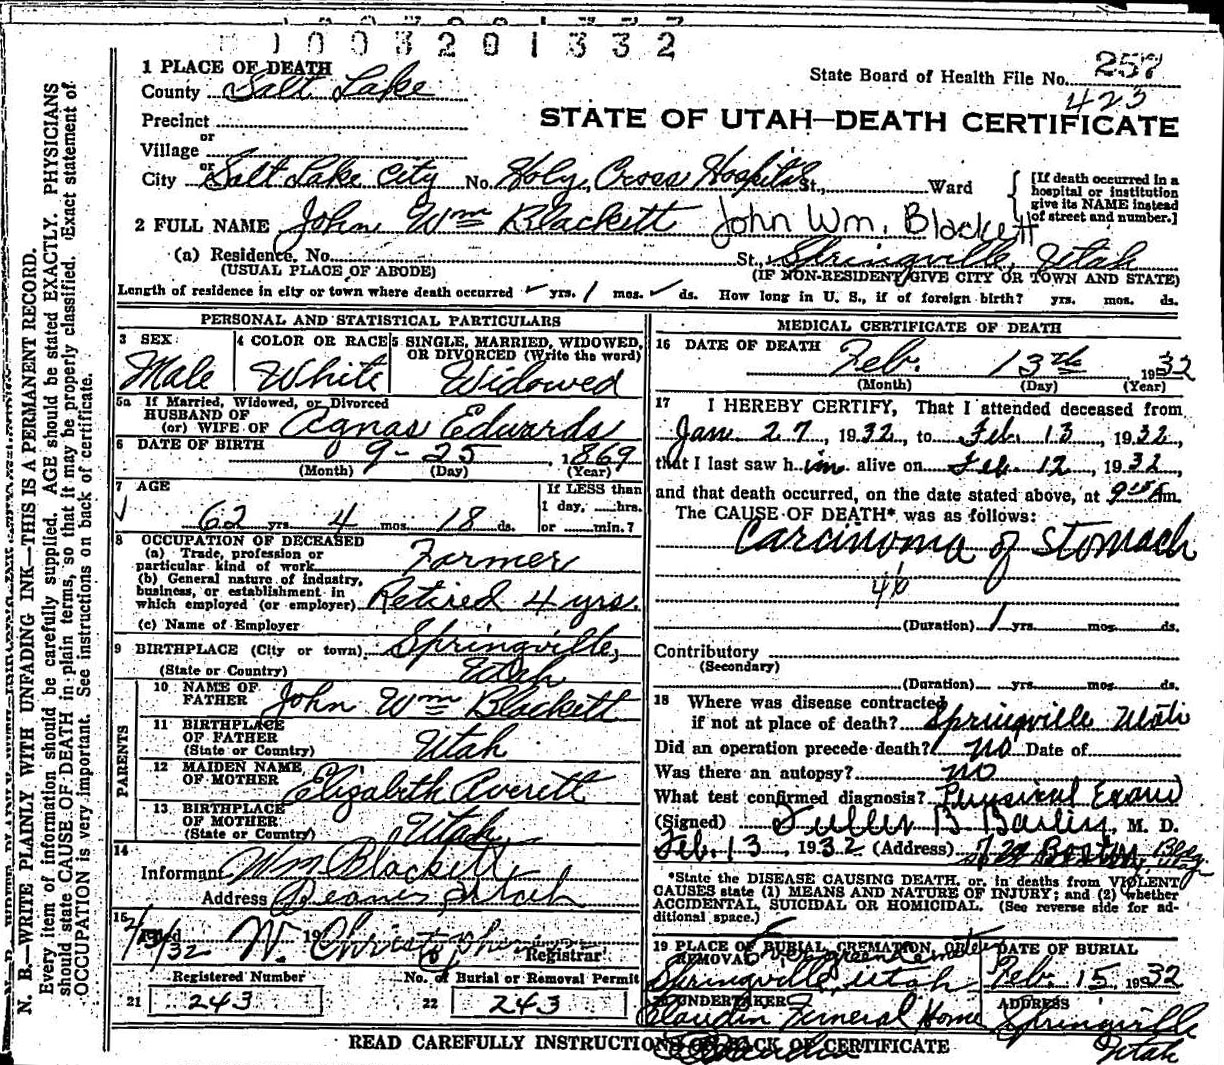 1003201332
1 PLACE OF DEATH
County Salt Lake
State Board of Health File No. 257
423
Precinct
or
Village
or
City Salt Lake City No. Holy Cross Hospital St., Ward
[If death occurred in a hospital or institution give its NAME instead of street and number.]
STATE OF UTAH—DEATH CERTIFICATE
2 FULL NAME John Wm Blackett John Wm. Blackett
(a) Residence, No. St., Springville, Utah
(USUAL PLACE OF ABODE) (IF NON-RESIDENT GIVE CITY OR TOWN AND STATE)
Length of residence in city or town where death occurred yrs. 1 mos. ds. How long in U. S., if of foreign birth? yrs. mos. ds.
PERSONAL AND STATISTICAL PARTICULARS
3 SEX 4 COLOR OR RACE 5 SINGLE, MARRIED, WIDOWED,
OR DIVORCED (Write the word)
Male White Widowed
5a If Married, Widowed, or Divorced
HUSBAND OF
(or) WIFE OF Agnas Edwards
6 DATE OF BIRTH 9-25, 1869
(Month) (Day) (Year)
7 AGE If LESS than
1 day, hrs.
62 yrs. 4 mos. 18 ds. or min.?
8 OCCUPATION OF DECEASED
(a) Trade, profession or
particular kind of work Farmer
(b) General nature of industry,
business, or establishment in
which employed (or employer) Retired 4 yrs.
(c) Name of Employer
9 BIRTHPLACE (City or town) Springville,
(State or Country) Utah
PARENTS
10 NAME OF
FATHER John Wm Blackett
11 BIRTHPLACE
OF FATHER
(State or Country) Utah
12 MAIDEN NAME
OF MOTHER Elizabeth Averett
13 BIRTHPLACE
OF MOTHER
(State or Country) Utah
14
Informant Wm Blackett
Address Utah
15
Filed 2/13/32 19 W. Registrar
Registered Number No. of Burial or Removal Permit
21 243 22 243
MEDICAL CERTIFICATE OF DEATH
16 DATE OF DEATH
Feb. 13th 1932
(Month) (Day) (Year)
17 I HEREBY CERTIFY, That I attended deceased from
Jan. 27, 1932, to Feb. 13, 1932,
that I last saw him alive on Feb. 12, 1932,
and that death occurred, on the date stated above, at 9 15 A m.
The CAUSE OF DEATH* was as follows:
Carcinoma of Stomach
46
(Duration) 1 yrs. mos. ds.
Contributory
(Secondary)
(Duration) yrs. mos. ds.
18 Where was disease contracted
if not at place of death? Springville Utah
Did an operation precede death? no Date of
Was there an autopsy? no
What test confirmed diagnosis? Physical Exam
(Signed) B , M. D.
Feb. 13, 1932 (Address) Boston Bldg.
*State the DISEASE CAUSING DEATH, or, in deaths from VIOLENT
CAUSES state (1) MEANS AND NATURE OF INJURY; and (2) whether
ACCIDENTAL, SUICIDAL OR HOMICIDAL. (See reverse side for ad-
ditional space.)
19 PLACE OF BURIAL, CREMATION, OR DATE OF BURIAL
REMOVAL Evergreen Cemetery
Springville, Utah Feb. 15 1932
20 UNDERTAKER ADDRESS
Claudin Funeral Home Springville
Utah
READ CAREFULLY INSTRUCTIONS ON BACK OF CERTIFICATE
N. B.—WRITE PLAINLY WITH UNFADING INK—THIS IS A PERMANENT RECORD.
Every item of information should be carefully supplied. AGE should be stated EXACTLY. PHYSICIANS
should state CAUSE OF DEATH in plain terms, so that it may be properly classified. Exact statement of
OCCUPATION is very important. See instructions on back of certificate.